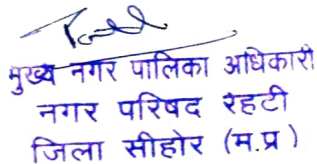 मुख्य नगर पालिका अधिकारी
नगर परिषद रेहटी
जिला सीहोर (म.प्र)